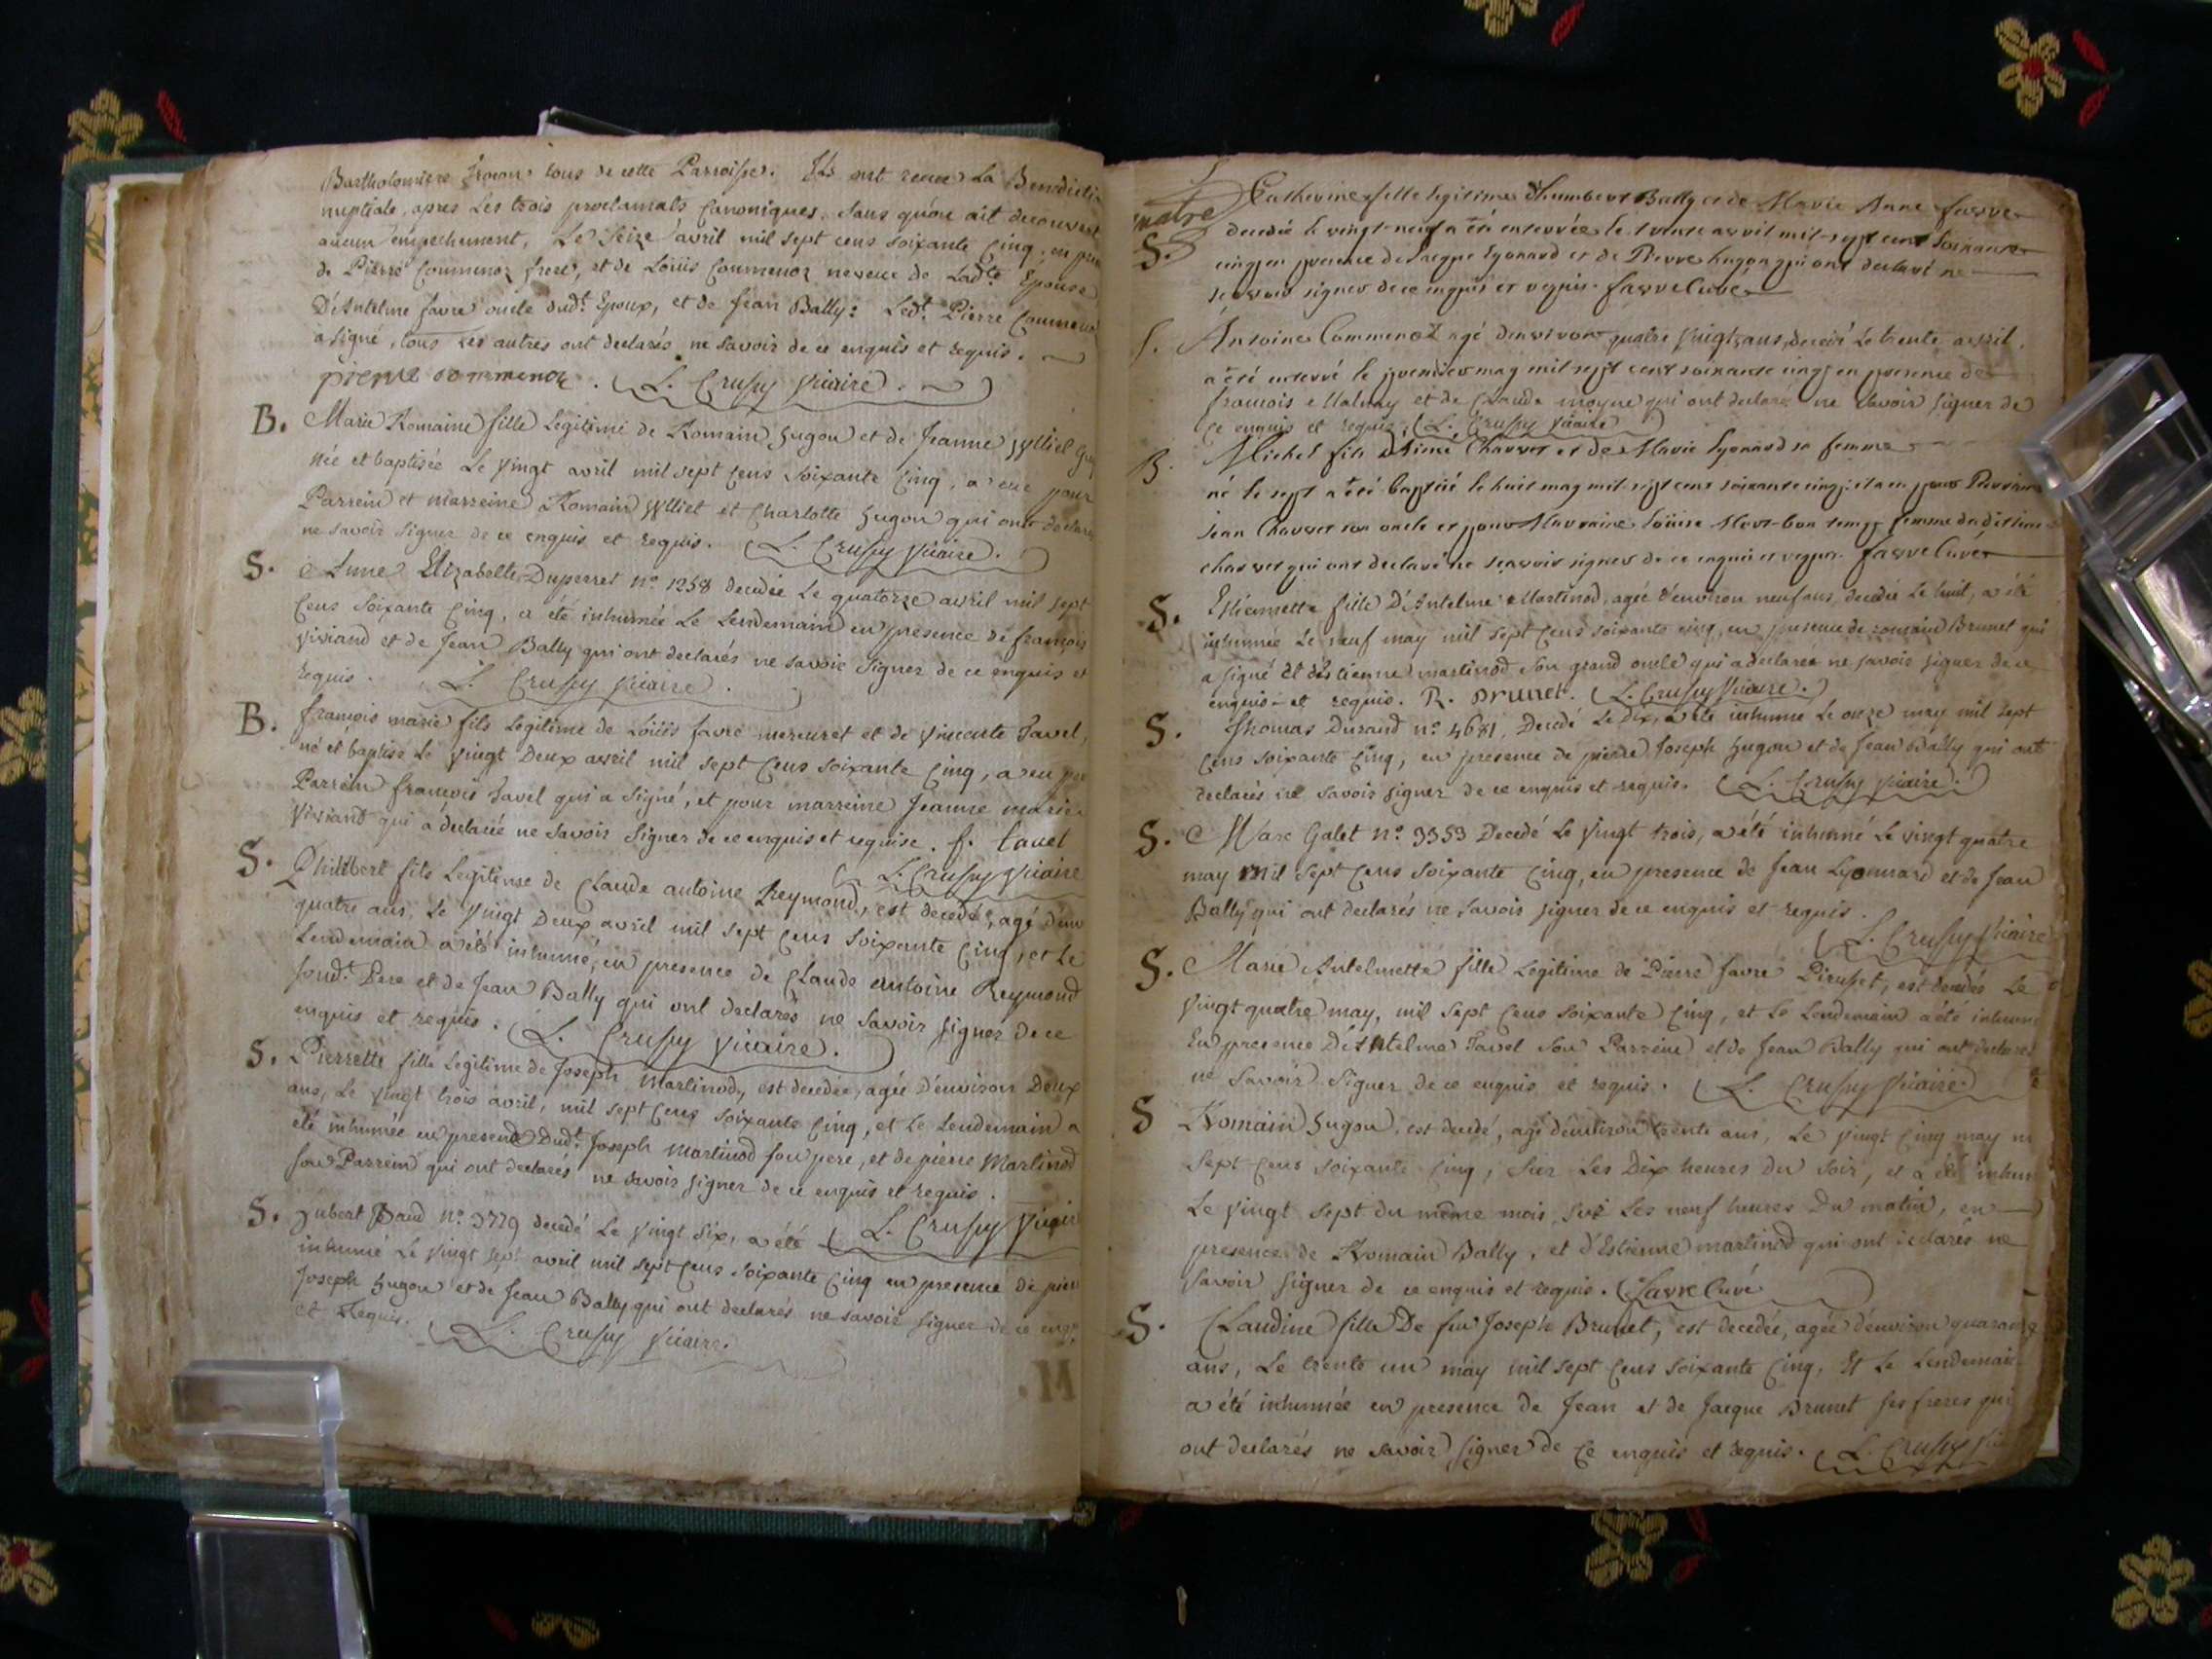 Bartholomiere tous de cette Parroisse. Ils ont receu La Benedicti
nuptiale, apres Les trois proclamats Canoniques, Sans qu'on ait decouvert
aucun empechement, Le Seize avril mil sept cens soixante Cinq, en pre
de Pierre Commenoz frere, et de Loüis Coumenoz neveue de Ladte Epouse
D'Antelme favre oncle dudt Epoux, et de Jean Bally: Ledt Pierre
a signé, tous Les autres ont declarés ne savoir de ce enquis et requis.
pierre commenoz. L. Crussy Vicaire.
B. Marie Romaine fille Legitime de Romain hugon et de Jeanne Ylliet
née et baptisée Le Vingt avril mil sept Cens soixante Cinq, a eue pour
Parrein et marreine Romain Ylliet et Charlotte hugon qui ont declaré
ne savoir signer de ce enquis et requis. L. Crussy Vicaire.
S. Elizabette Duperret n.o 1258 decedée Le quatorze avril mil sept
Cens soixante Cinq, a été inhumée Le Lendemain en presence de francois
Viviand et de Jean Bally qui ont declarés ne savoir signer de ce enquis et
requis. L. Crussy Vicaire.
B. francois marie fils Legitime de Loüis favre mercuret et de Vincente Tavel,
né et baptisé Le Vingt Deux avril mil sept Cens soixante Cinq, a eu
Parrein francois Tavel qui a signé, et pour marreine Jeanne marie
Viviand qui a declarée ne savoir signer de ce enquis et requise. f. tavel
L. Crussy Vicaire
S. Philibert fils Legitime de Claude antoine Reymond, est decedé, agé d'env
quatre ans, Le Vingt Deux avril mil sept Cens soixante Cinq, et Le
Lendemain a été inhumé, en presence de Claude antoine Reymond
sondt Pere et de Jean Bally qui ont declarés ne savoir signer de ce
enquis et requis. L. Crussy Vicaire.
S. Pierrette fille Legitime de Joseph Martinod, est decedée, agée d'environ Deux
ans, Le Vingt trois avril, mil sept Cens soixante Cinq, et Le Lendemain a
été inhumée en presence Dudt Joseph Martinod son pere, et de pierre Martinod
son Parrein qui ont declarés ne savoir signer de ce enquis et requis.
L. Crussy Vicair
S. Baud n.o 3779 decedé Le Vingt Six, a été
inhumé Le Vingt sept avril mil sept Cens soixante Cinq en presence de pier
Joseph hugon et de Jean Bally qui ont declarés ne savoir signer de ce enq
et Requis. L. Crussy Vicaire.
S. Catherine fille legitime d'humbert Bally et de Marie Anne favre
decedée le vingt neuf a été enterrée le trente avril mil sept cent soixante
cinq en presence de Lyonard et de Pierre hugon qui ont declaré ne
scavoir signer de ce enquis et requis. favre Curé
S. Antoine Commenoz agé d'environ quatre Vingt ans, decedé Le trente avril,
a été enterré le premier may mil sept cent soixante cinq en presence de
francois Malnay et de Claude moyne qui ont declaré ne savoir signer de
Ce enquis et requis. L. Crussy Vicaire
B. Michel fils d'Aimé Charvet et de Marie Lyonard sa femme
né le sept a été baptisé le huit may mil sept cens soixante cinq; il a eu pour Parrain
Jean Charvet son oncle et pour Marraine Loüise femme
charvet qui ont declaré ne scavoir signer de ce enquis et requis. favre Curé
S. Estiennette fille D'Antelme Martinod, agée d'environ neuf ans, decedée Le huit, a été
inhumée Le neuf may mil sept Cens soixante cinq, en presence de romain Brunet qui
a signé et d'Estienne martinod son grand oncle qui a declarée ne savoir signer de ce
enquis et requis. R. Brunet. L. Crussy Vicaire.
S. Thomas Durand n.o 4681, Decedé Le Dix, a été inhumé Le onze may mil sept
Cens soixante Cinq, en presence de pierre Joseph hugon et de Jean Bally qui ont
declarés ne savoir signer de ce enquis et requis. L. Crussy Vicaire.
S. Marc Galet n.o 3353 Decedé Le Vingt trois, a été inhumé Le vingt quatre
may mil sept Cens soixante Cinq, en presence de Jean Lyonnard et de Jean
Bally qui ont declarés ne savoir signer de ce enquis et requis.
L. Crussy Vicaire
S. Marie Antelmette fille Legitime de Pierre favre est decedée Le
Vingt quatre may, mil sept Cens soixante Cinq, et Le Lendemain a été inhum
En presence D'Antelme Tavel son Parrein et de Jean Bally qui ont declarés
ne savoir signer de ce enquis et requis. L. Crussy Vicaire.
S Romain hugon, est decedé, agé d'environ trente ans, Le Vingt Cinq may m
sept Cens soixante Cinq, sur Les Dix heures du soir, et a été inhum
Le Vingt sept du même mois, sur Les neuf heures Du matin, en
presence de Romain Bally, et d'Estienne martinod qui ont declarés ne
savoir signer de ce enquis et requis. favre Curé
S. Claudine fille De feu Joseph Brunet, est decedée, agée d'environ quarante
ans, Le trente un may mil sept Cens soixante Cinq, Et Le Lendemain
a été inhumée en presence de Jean et de Jacque Brunet ses freres qui
ont declarés ne savoir signer de Ce enquis et requis. L. Crussy Vic